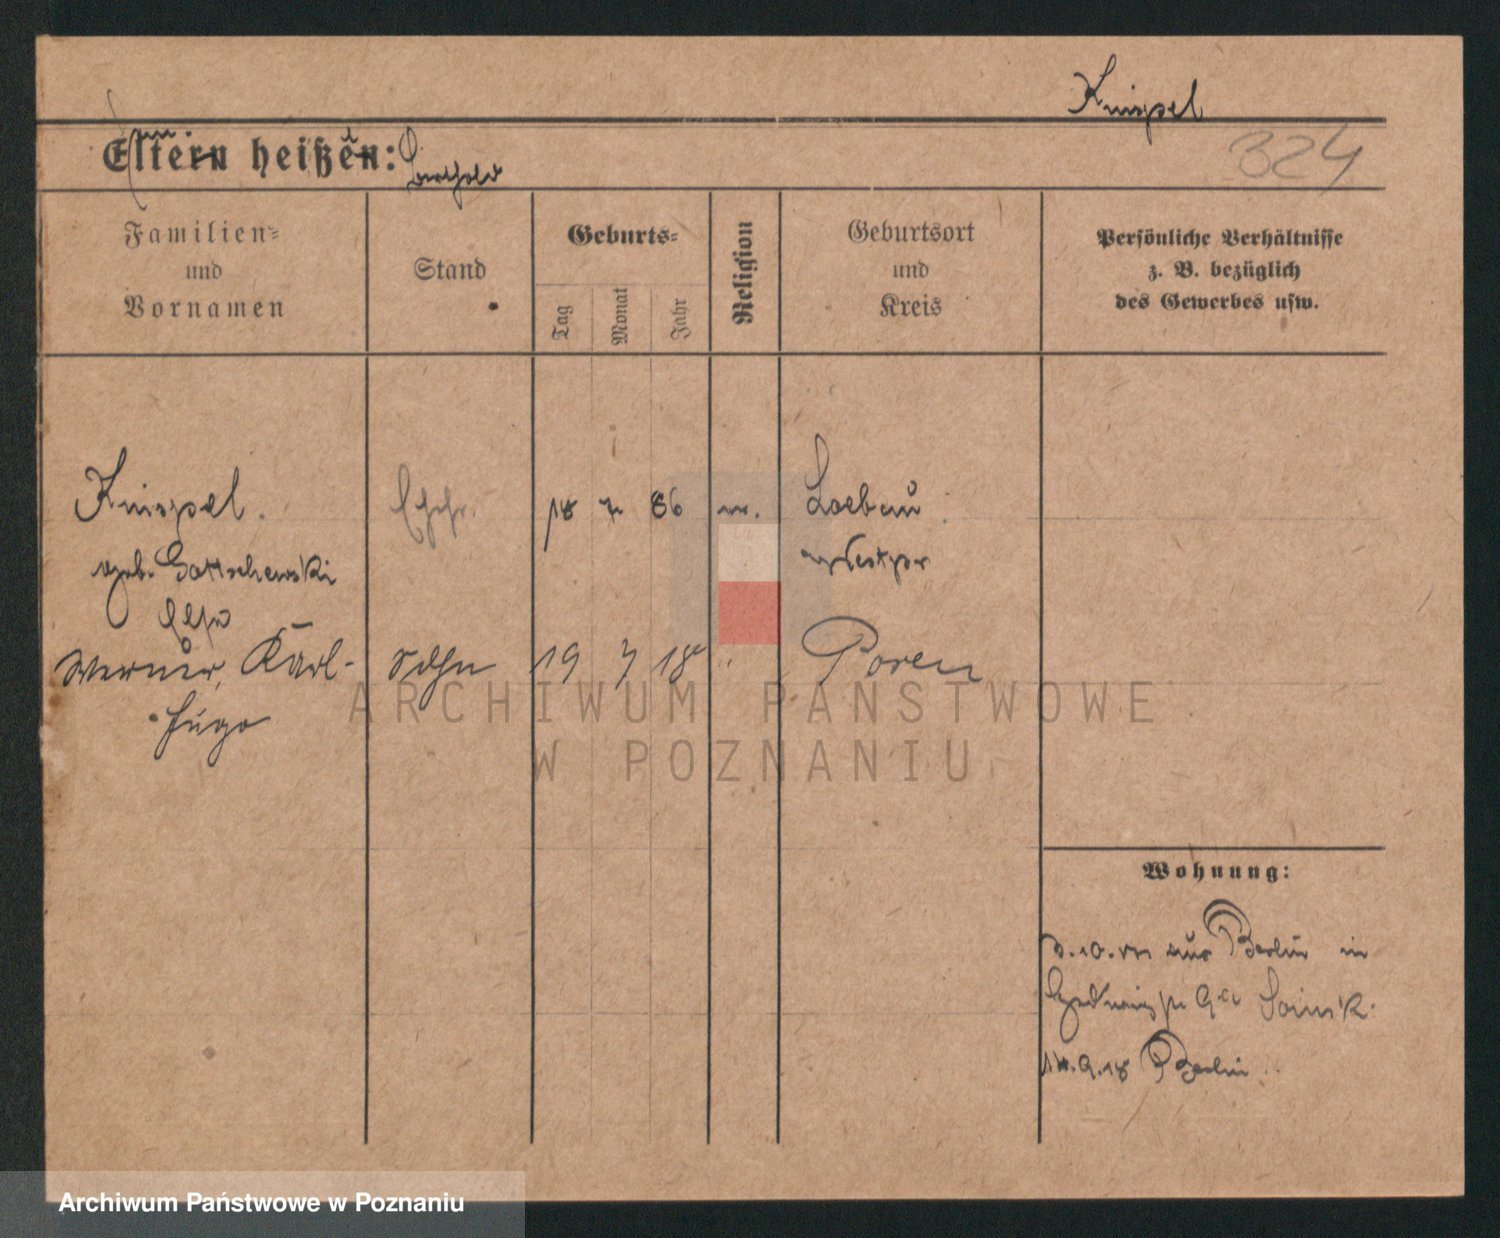 Knispel
324
Eltern heißen:
Berthold
Familien-
und
Vornamen
Stand
Geburts-
Tag
Monat
Jahr
Religion
Geburtsort
und
Kreis
Persönliche Verhältnisse
z. B. bezüglich
des Gewerbes usw.
Knispel. Ehefr. 18 7 86 Loebau
geb. Gottschewski Westpr
Else
Werner, Karl- Sohn 19 7 18 " Posen
Hugo
ARCHIWUM PAŃSTWOWE
W POZNANIU
Wohnung:
aus Berlin in
9
9.18 Berlin
Archiwum Państwowe w Poznaniu